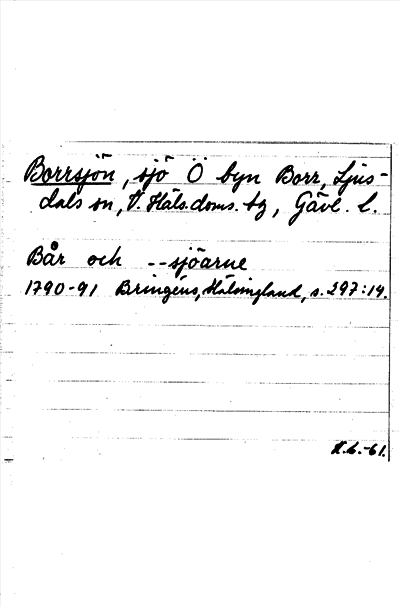 Borrsjön, sjö Ö byn Borr, Ljus-
dals sn, V. Häls. doms. tg, Gävl. l.
Bår och --sjöarne
1790-91 Bringéus, Hälsingland, s. 297:14.
K.L.-61.